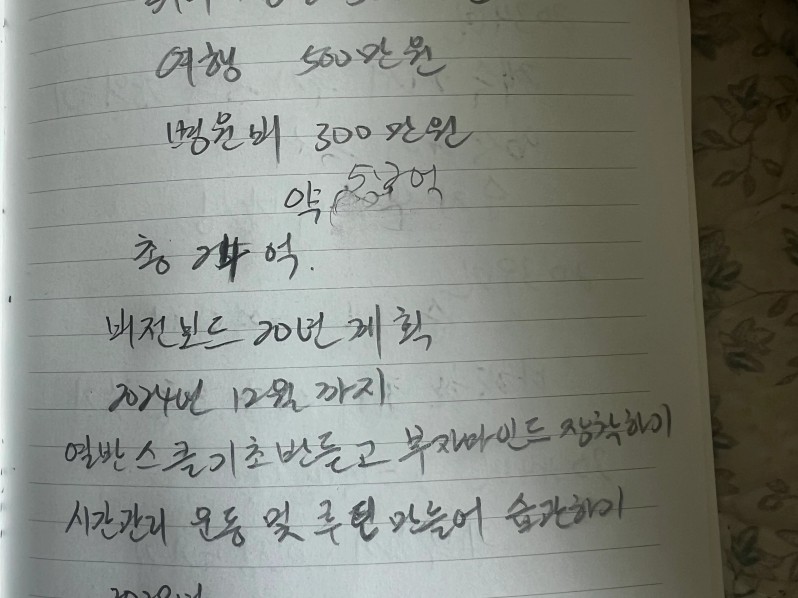 여행 500만원
병원비 300만원
약 5.3억
총 억.
비전보드 20년 계획
2024년 12월 까지
열반스쿨기초반듣고 부자마인드 장착하기
시간관리 운동 및 루틴 만들어 습관하기